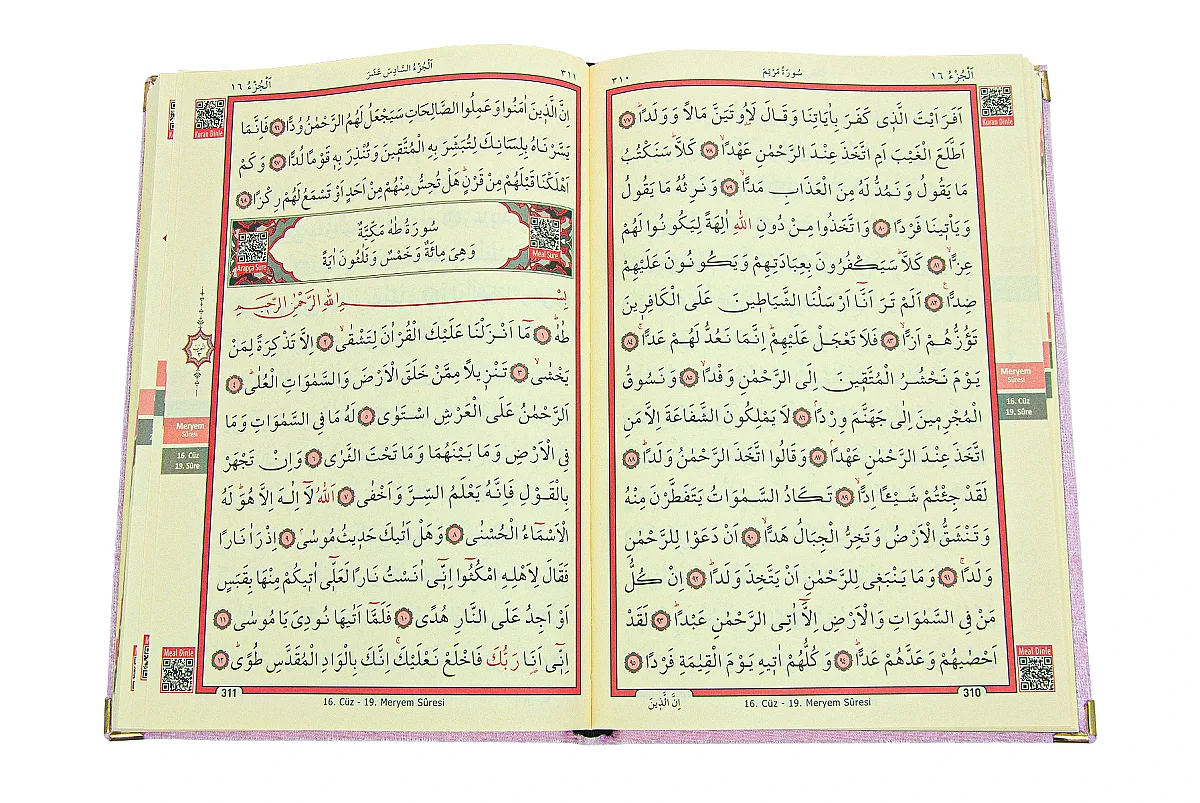 اَلْجُزْءُ ١٦
سُورَةُ مَرْيَمَ
٣١٠
Kuran Dinle
اَفَرَاَيْتَ الَّذٖي كَفَرَ بِاٰيَاتِنَا وَقَالَ لَاُو۫تَيَنَّ مَالاً وَوَلَداًؕ ﴿٧٧﴾
اَطَّلَعَ الْغَيْبَ اَمِ اتَّخَذَ عِنْدَ الرَّحْمٰنِ عَهْداًۙ ﴿٧٨﴾ كَلَّاؕ سَنَكْتُبُ
مَا يَقُولُ وَنَمُدُّ لَهُ مِنَ الْعَذَابِ مَداًّۙ ﴿٧٩﴾ وَنَرِثُهُ مَا يَقُولُ
وَيَأْتٖينَا فَرْداً ﴿٨٠﴾ وَاتَّخَذُوا مِنْ دُونِ اللّٰهِ اٰلِهَةً لِيَكُونُوا لَهُمْ
عِزاًّۙ ﴿٨١﴾ كَلَّاؕ سَيَكْفُرُونَ بِعِبَادَتِهِمْ وَيَكُونُونَ عَلَيْهِمْ
ضِداًّ۟ ﴿٨٢﴾ اَلَمْ تَرَ اَنَّٓا اَرْسَلْنَا الشَّيَاطٖينَ عَلَى الْكَافِرٖينَ
تَؤُزُّهُمْ اَزاًّۙ ﴿٨٣﴾ فَلَا تَعْجَلْ عَلَيْهِمْؕ اِنَّمَا نَعُدُّ لَهُمْ عَداًّۚ ﴿٨٤﴾
يَوْمَ نَحْشُرُ الْمُتَّقٖينَ اِلَى الرَّحْمٰنِ وَفْداًۙ ﴿٨٥﴾ وَنَسُوقُ
الْمُجْرِمٖينَ اِلٰى جَهَنَّمَ وِرْداًۢ ﴿٨٦﴾ لَا يَمْلِكُونَ الشَّفَاعَةَ اِلَّا مَنِ
اتَّخَذَ عِنْدَ الرَّحْمٰنِ عَهْداًۢ ﴿٨٧﴾ وَقَالُوا اتَّخَذَ الرَّحْمٰنُ وَلَداًؕ ﴿٨٨﴾
لَقَدْ جِئْتُمْ شَيْـٔاً اِداًّۙ ﴿٨٩﴾ تَكَادُ السَّمٰوَاتُ يَتَفَطَّرْنَ مِنْهُ
وَتَنْشَقُّ الْاَرْضُ وَتَخِرُّ الْجِبَالُ هَداًّۙ ﴿٩٠﴾ اَنْ دَعَوْا لِلرَّحْمٰنِ
وَلَداًۚ ﴿٩١﴾ وَمَا يَنْبَغٖي لِلرَّحْمٰنِ اَنْ يَتَّخِذَ وَلَداًؕ ﴿٩٢﴾ اِنْ كُلُّ
مَنْ فِي السَّمٰوَاتِ وَالْاَرْضِ اِلَّٓا اٰتِي الرَّحْمٰنِ عَبْداًؕ ﴿٩٣﴾ لَقَدْ
اَحْصٰيهُمْ وَعَدَّهُمْ عَداًّؕ ﴿٩٤﴾ وَكُلُّهُمْ اٰتٖيهِ يَوْمَ الْقِيٰمَةِ فَرْداً ﴿٩٥﴾
Meryem
Sûresi
16. Cüz
19. Sûre
Meal Dinle
310
16. Cüz - 19. Meryem Sûresi
اِنَّ الَّذٖينَ
٣١١
اَلْجُزْءُ السَّادِسَ عَشَرَ
اَلْجُزْءُ ١٦
Kuran Dinle
اِنَّ الَّذٖينَ اٰمَنُوا وَعَمِلُوا الصَّالِحَاتِ سَيَجْعَلُ لَهُمُ الرَّحْمٰنُ وُداًّ ﴿٩٦﴾ فَاِنَّمَا
يَسَّرْنَاهُ بِلِسَانِكَ لِتُبَشِّرَ بِهِ الْمُتَّقٖينَ وَتُنْذِرَ بِهٖ قَوْماً لُداًّ ﴿٩٧﴾ وَكَمْ
اَهْلَكْنَا قَبْلَهُمْ مِنْ قَرْنٍؕ هَلْ تُحِسُّ مِنْهُمْ مِنْ اَحَدٍ اَوْ تَسْمَعُ لَهُمْ رِكْزاً ﴿٩٨﴾
سُورَةُ طٰهٰ مَكِّيَّةٌ
وَهِيَ مِائَةٌ وَخَمْسٌ وَثَلٰثُونَ اٰيَةً
Meal Sure
Arapça Sure
بِسْمِ اللّٰهِ الرَّحْمٰنِ الرَّحٖيمِ
طٰهٰۜ ﴿١﴾ مَٓا اَنْزَلْنَا عَلَيْكَ الْقُرْاٰنَ لِتَشْقٰىۙ ﴿٢﴾ اِلَّا تَذْكِرَةً لِمَنْ
يَخْشٰىۙ ﴿٣﴾ تَنْزٖيلاً مِمَّنْ خَلَقَ الْاَرْضَ وَالسَّمٰوَاتِ الْعُلٰىؕ ﴿٤﴾
اَلرَّحْمٰنُ عَلَى الْعَرْشِ اسْتَوٰى ﴿٥﴾ لَهُ مَا فِي السَّمٰوَاتِ وَمَا
فِي الْاَرْضِ وَمَا بَيْنَهُمَا وَمَا تَحْتَ الثَّرٰى ﴿٦﴾ وَاِنْ تَجْهَرْ
بِالْقَوْلِ فَاِنَّهُ يَعْلَمُ السِّرَّ وَاَخْفٰى ﴿٧﴾ اَللّٰهُ لَٓا اِلٰهَ اِلَّا هُوَؕ لَهُ
الْاَسْمَٓاءُ الْحُسْنٰى ﴿٨﴾ وَهَلْ اَتٰيكَ حَدٖيثُ مُوسٰىۘ ﴿٩﴾ اِذْ رَاٰ نَاراً
فَقَالَ لِاَهْلِهِ امْكُـثُٓوا اِنّٖٓي اٰنَسْتُ نَاراً لَعَلّٖٓي اٰتٖيكُمْ مِنْهَا بِقَبَسٍ
اَوْ اَجِدُ عَلَى النَّارِ هُدًى ﴿١٠﴾ فَلَمَّٓا اَتٰيهَا نُودِيَ يَا مُوسٰىؕ ﴿١١﴾
اِنّٖٓي اَنَا رَبُّكَ فَاخْلَعْ نَعْلَيْكَۚ اِنَّكَ بِالْوَادِ الْمُقَدَّسِ طُوًىؕ ﴿١٢﴾
Meryem
Sûresi
16. Cüz
19. Sûre
Meal Dinle
311
16. Cüz - 19. Meryem Sûresi